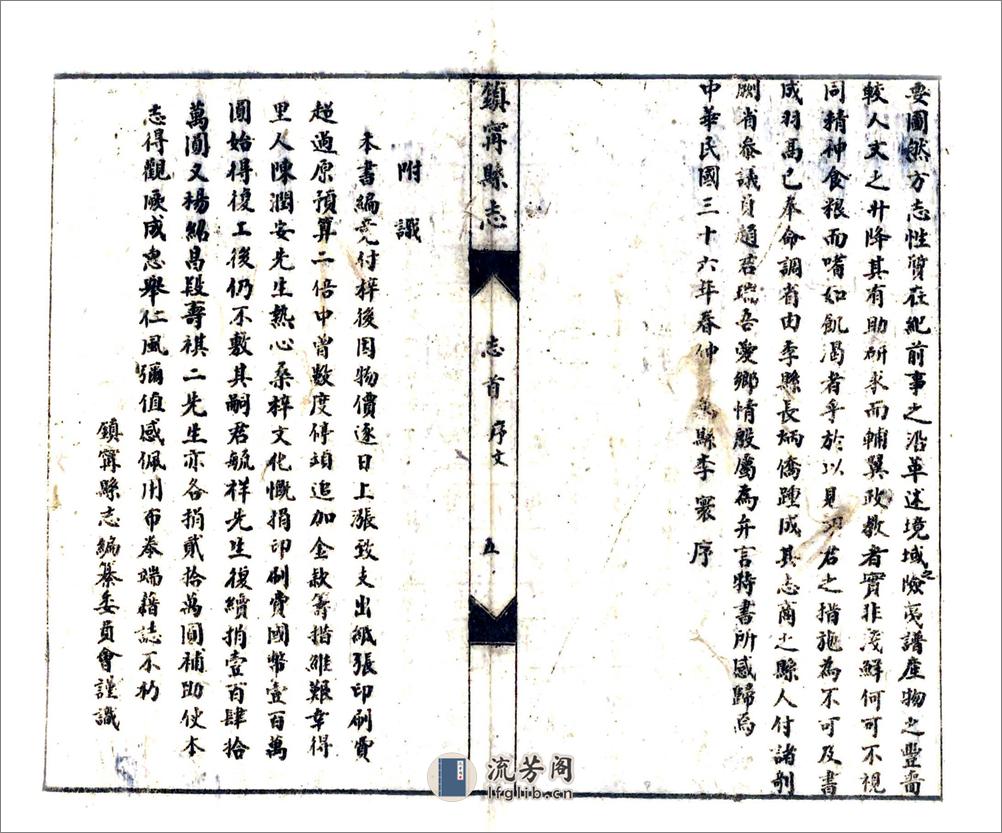 要圖然方志性質在紀前事之沿革述境域之險夷譜產物之豐嗇
較人文之升降其有助研求而輔翼政教者實非淺鮮何可不視
同精神食粮而嗜如飢渴者乎於以見君之措施為不可及書
成羽高已奉命調省由李縣長炳僑踵成其志商之縣人付諸剞
劂省參議員趙君瑞吾愛鄉情殷屬為弁言特書所感歸焉
中華民國三十六年春仲縣李寰序
鎮寧縣志
志首 序文
五
附識
本書編竟付梓後因物價逐日上漲致支出紙張印刷費
超過原預算二倍中曾數度停頓追加金款籌措維艱幸得
里人陳潤安先生熱心桑梓文化慨捐印刷費國幣壹百萬
圓始得復工後仍不敷其嗣君毓祥先生復續捐壹百肆拾
萬圓又楊紹昌段壽祺二先生亦各捐貳拾萬圓補助使本
志得觀厥成惠舉仁風彌值感佩用布拳端藉誌不朽
鎮寧縣志編纂委員會謹識
流芳阁
lfglib.cn